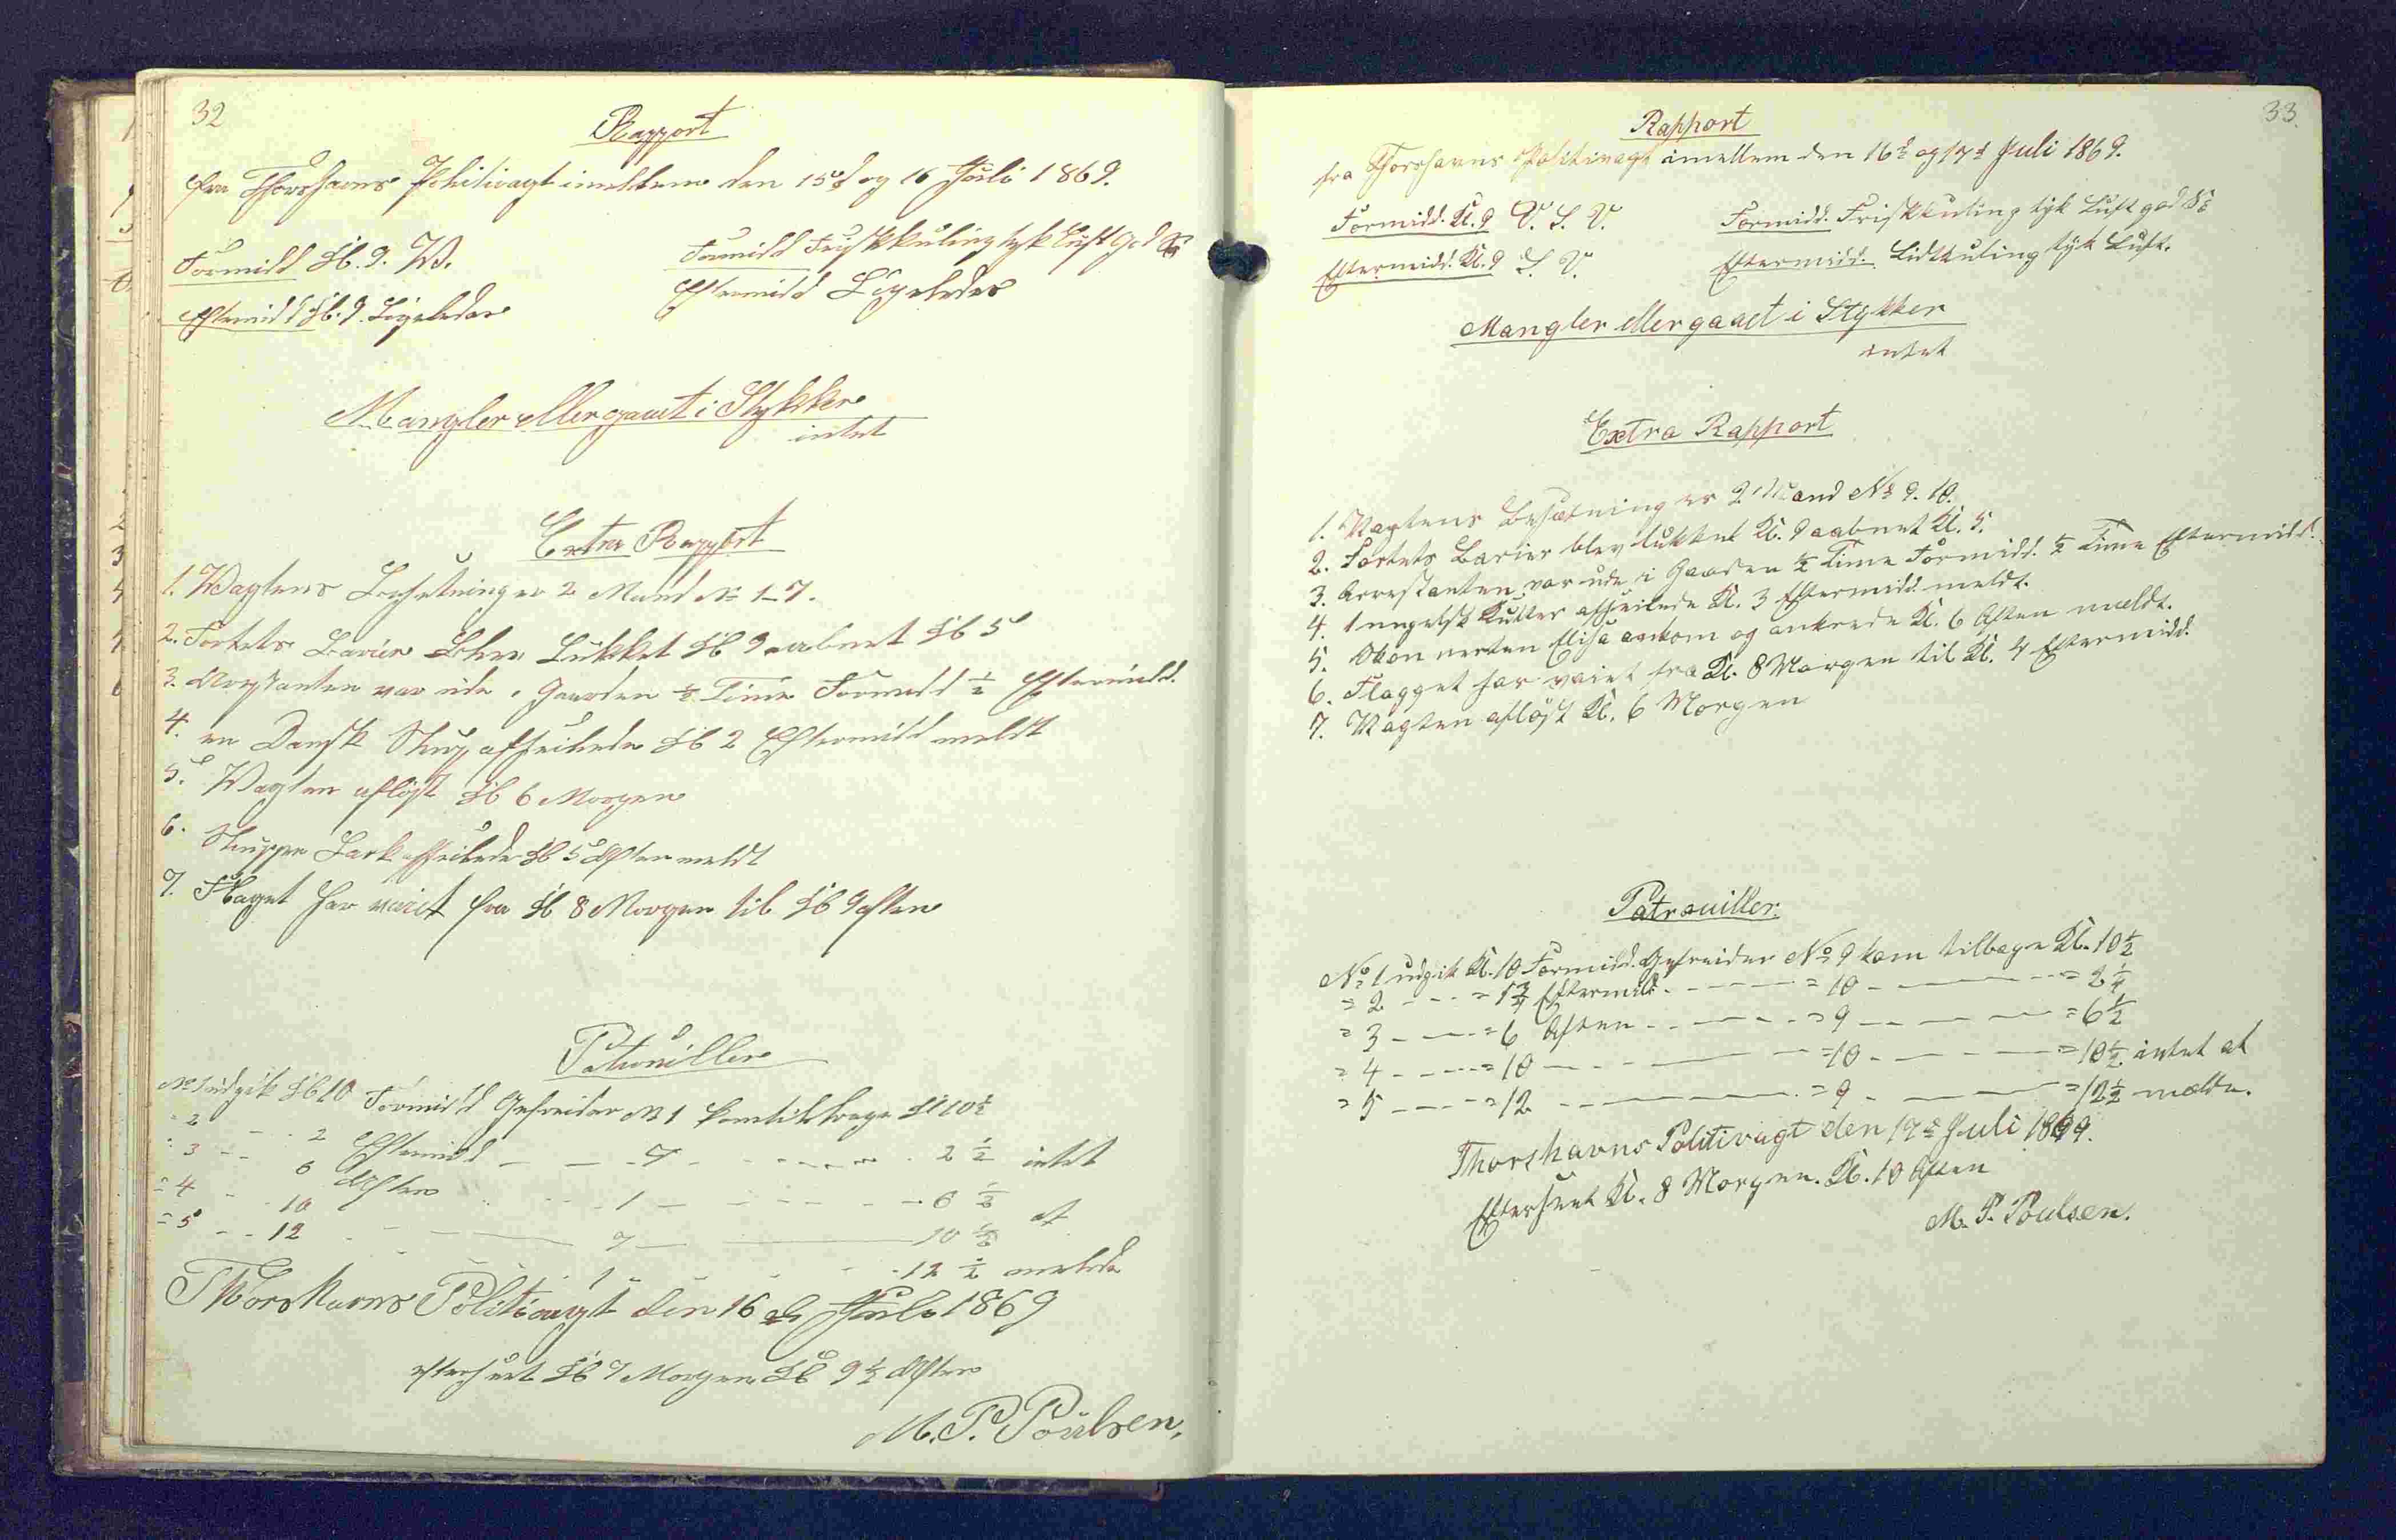 32
Rapport
fra Thorshavns Politivagt imellem den 15de og 16 Juli 1869.
Formidd Kl. 9. W.
Formidd Friskkuling tyk Luft god S
Eftermidd Kl. 9. Ligeledes
Eftermidd Ligeledes
Mangler eller gaaet i Stykker
intet
Extra Rapport
1. Wagtens Besetning er 2 Mand No 1-7.
2. Fortets Barier Blev Lukket Kl 9 aabnet Kl 5
3. Arestanten var ude i Gaarden ½ Time Formidd ½ Eftermidd.
4. en Dansk Slup afseilede Kl 2 Eftermidd meldt
5. Wagten afløst Kl 6 Morgen
6. Sluppen Lark afseilede Kl 5 Aften meldt
7. Flaget har vaiet fra Kl 8 Morgen til Kl 9 Aften
Patrouiller
No 1 udgik Kl 10 Formidd Gefreider No 1 kom tilbage Kl 10½
" 2 - - 2 Eftermidd - - 7 - - - - 2½ intet
" 3 - - 6 Aften - - 1 - - - - 6½
= 4 - - 10 - - 7 - - 10½ at
= 5 - - 12 - - 1 - - 12½ melde
Thorshavns Politivagt den 16de Juli 1869
efterseet Kl 7 Morgen Kl 9½ Aften
M. P. Poulsen,
33.
Rapport
fra Thorshavns Politivagt imellem den 16de og 17de Juli 1869.
Formidd. Kl. 9 V. S. V.
Formidd. Friskkuling tyk Luft god Sö
Eftermidd. Kl. 9 S. V.
Eftermidd. Lidtkuling tyk Luft.
Mangler eller gaaet i Stykker
intet
Extra Rapport
1. Vagtens Besætning er 2 Mand No 9. 10.
2. Fortets Barier blev lukket Kl. 9 aabnet Kl. 5.
3. Arrestanten var ude i Gaarden ½ Time Formidd. ½ Time Eftermidd.
4. 1 engelsk Kutter afseilede Kl. 3 Eftermidd. meldt.
5. Skonnerten Elisa ankom og ankrede Kl. 6 Aften meldt.
6. Flagget har vaiet fra Kl. 8 Morgen til Kl. 4 Eftermidd.
7. Vagten afløst Kl. 6 Morgen
Patrouiller.
No 1 udgik Kl. 10 Formidd. Gefreider No 9 kom tilbage Kl. 10½
= 2 - - - = 1¾ Eftermidd. - - - = 10 - - - = 2¼
= 3 - - - = 6 Aften - - - = 9 - - - = 6½
= 4 - - - = 10 - - - = 10 - - - = 10½ intet at
= 5 - - - = 12 - - - = 9 - - - = 12½ melde.
Thorshavns Politivagt den 17de Juli 1869.
Efterseet Kl. 8 Morgen. Kl. 10 Aften
M. P. Poulsen.